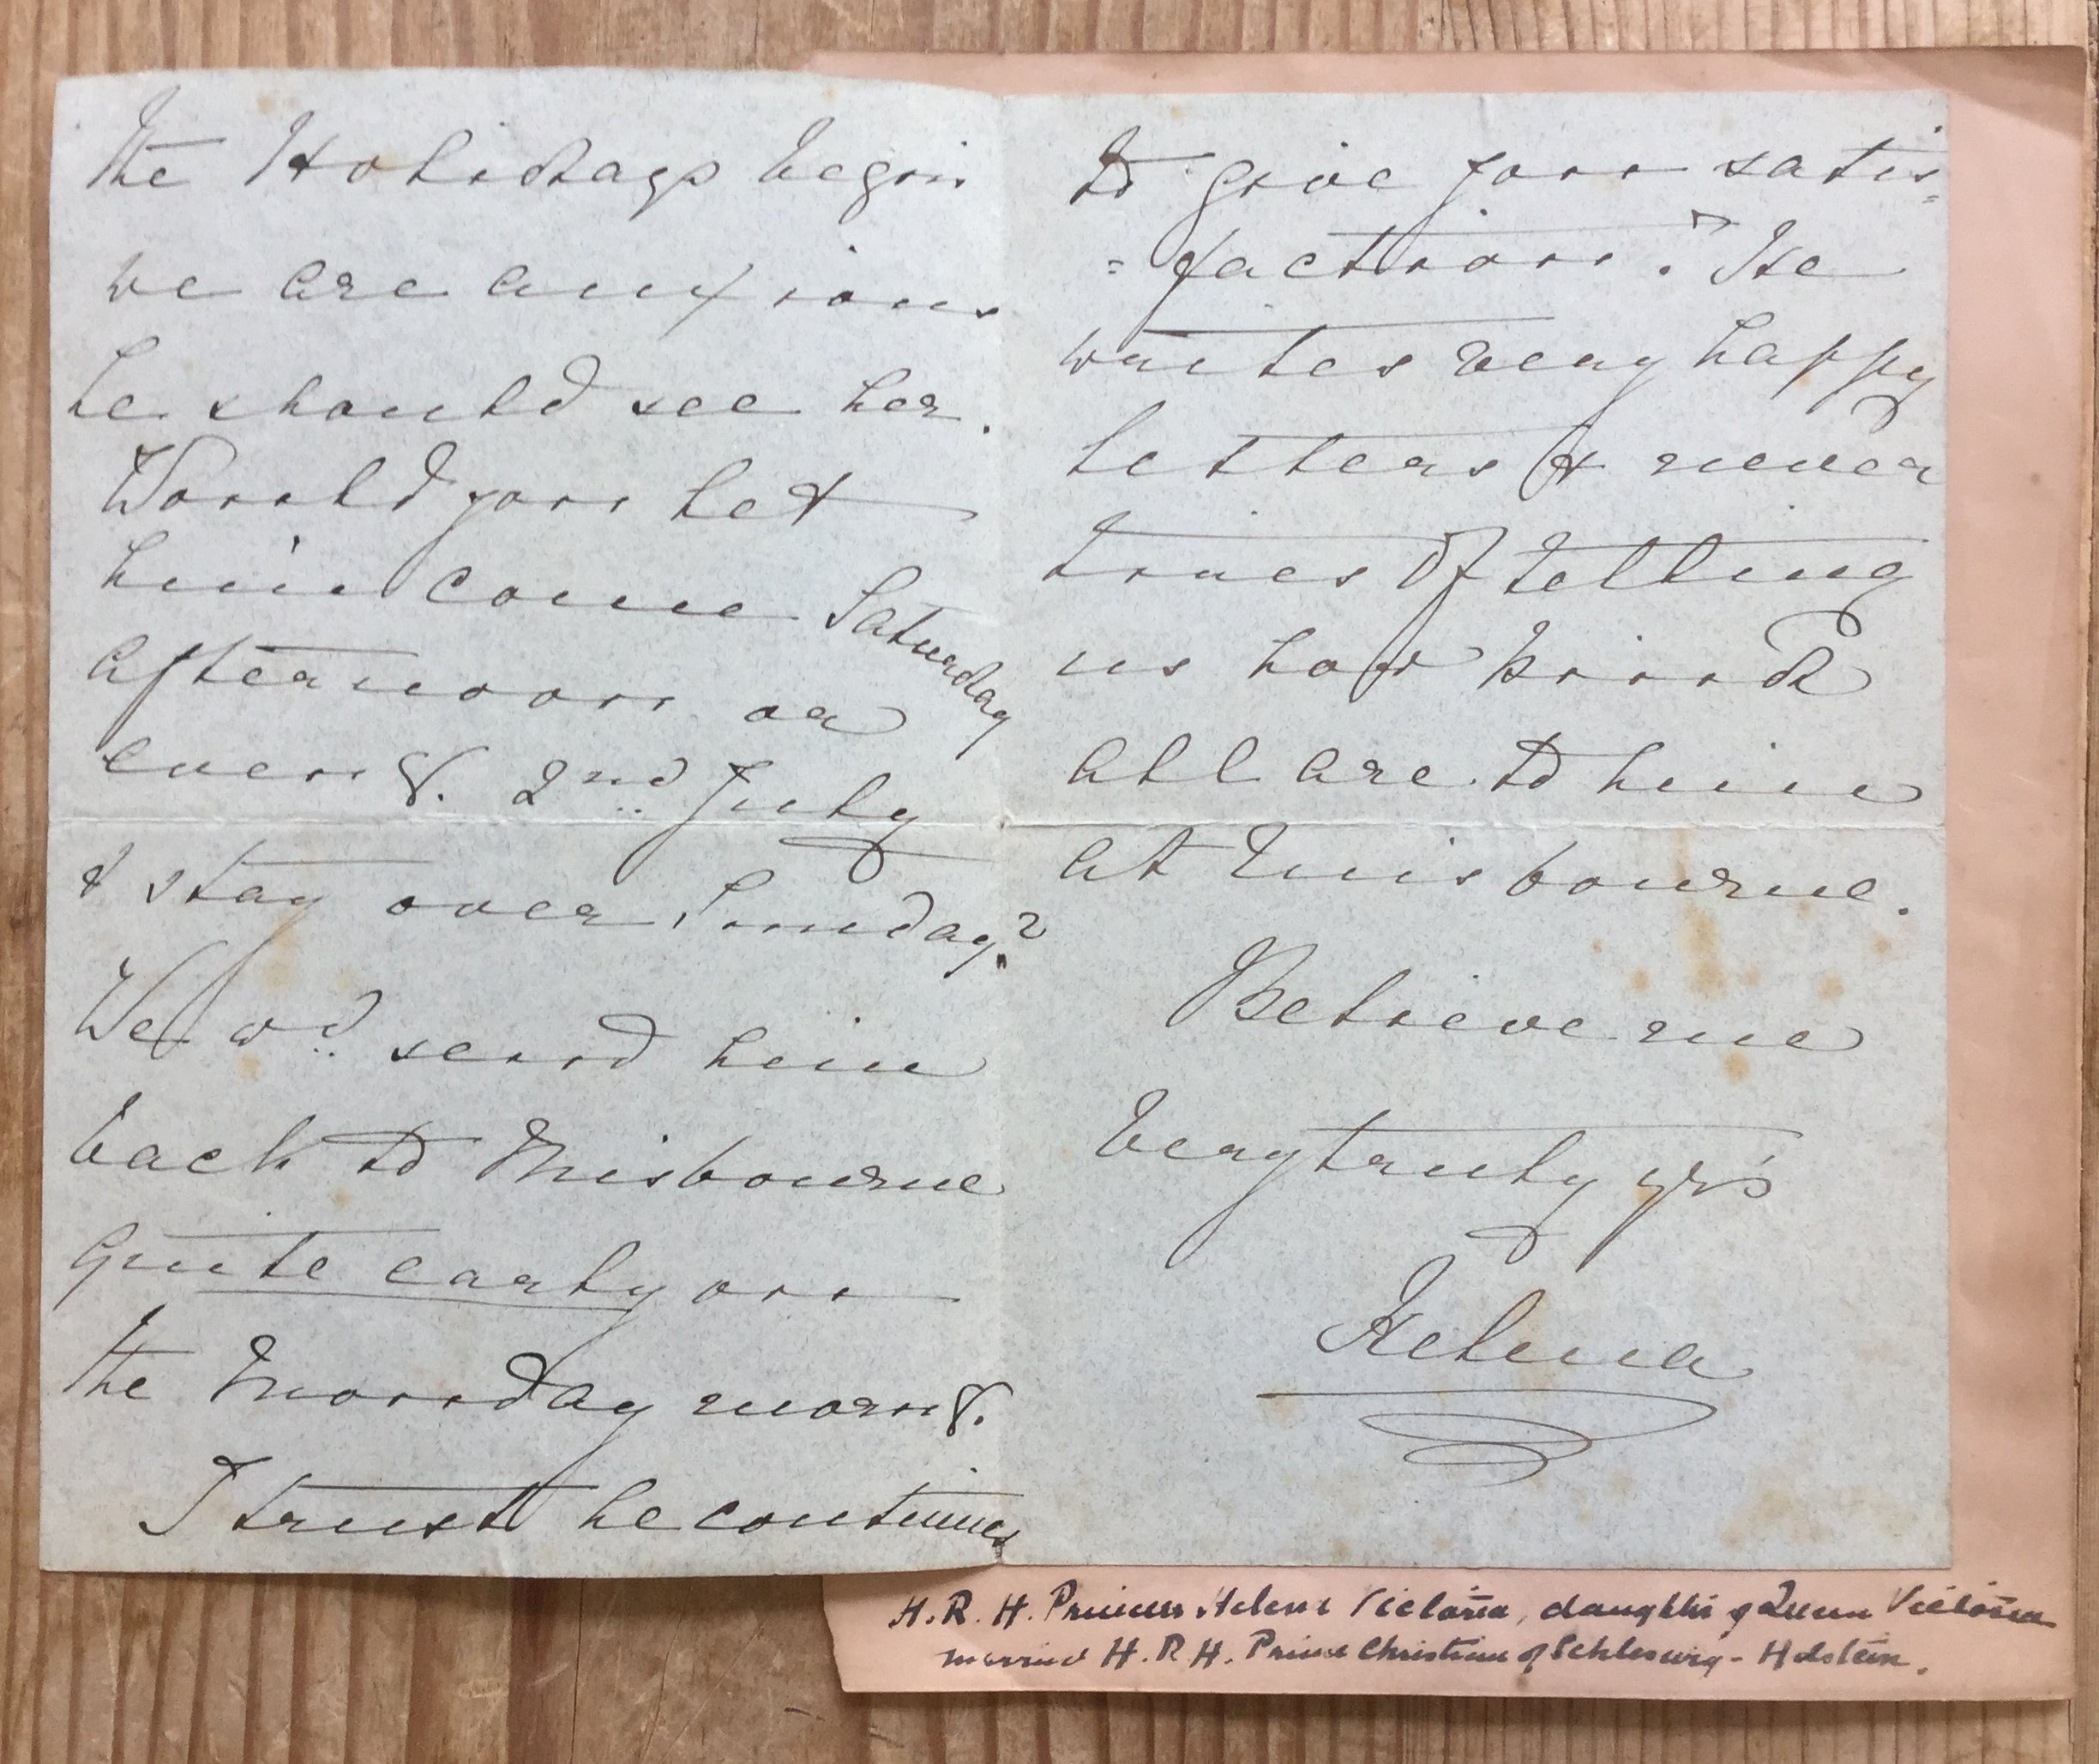 the Holidays begin
we are anxious
he should see her.
Would you let
him come Saturday
afternoon or
eveng. 2nd July
& stay over Sunday?
We wd. send him
back to Misbourne
quite early on
the Monday morng.
I trust he continues
to give you satis=
=faction? He
writes very happy
letters & never
tires of telling
us how kind
all are to him
at Misbourne.
Believe me
very truly yrs
Helena
H.R.H. Princess Helena Victoria, daughter of Queen Victoria
married H.R.H. Prince Christian of Schleswig-Holstein.